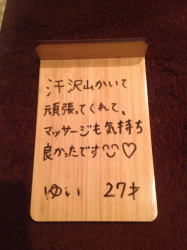 汗沢山かいて
頑張ってくれて、
マッサージも気持ち
良かったです♡
ゆい 27才